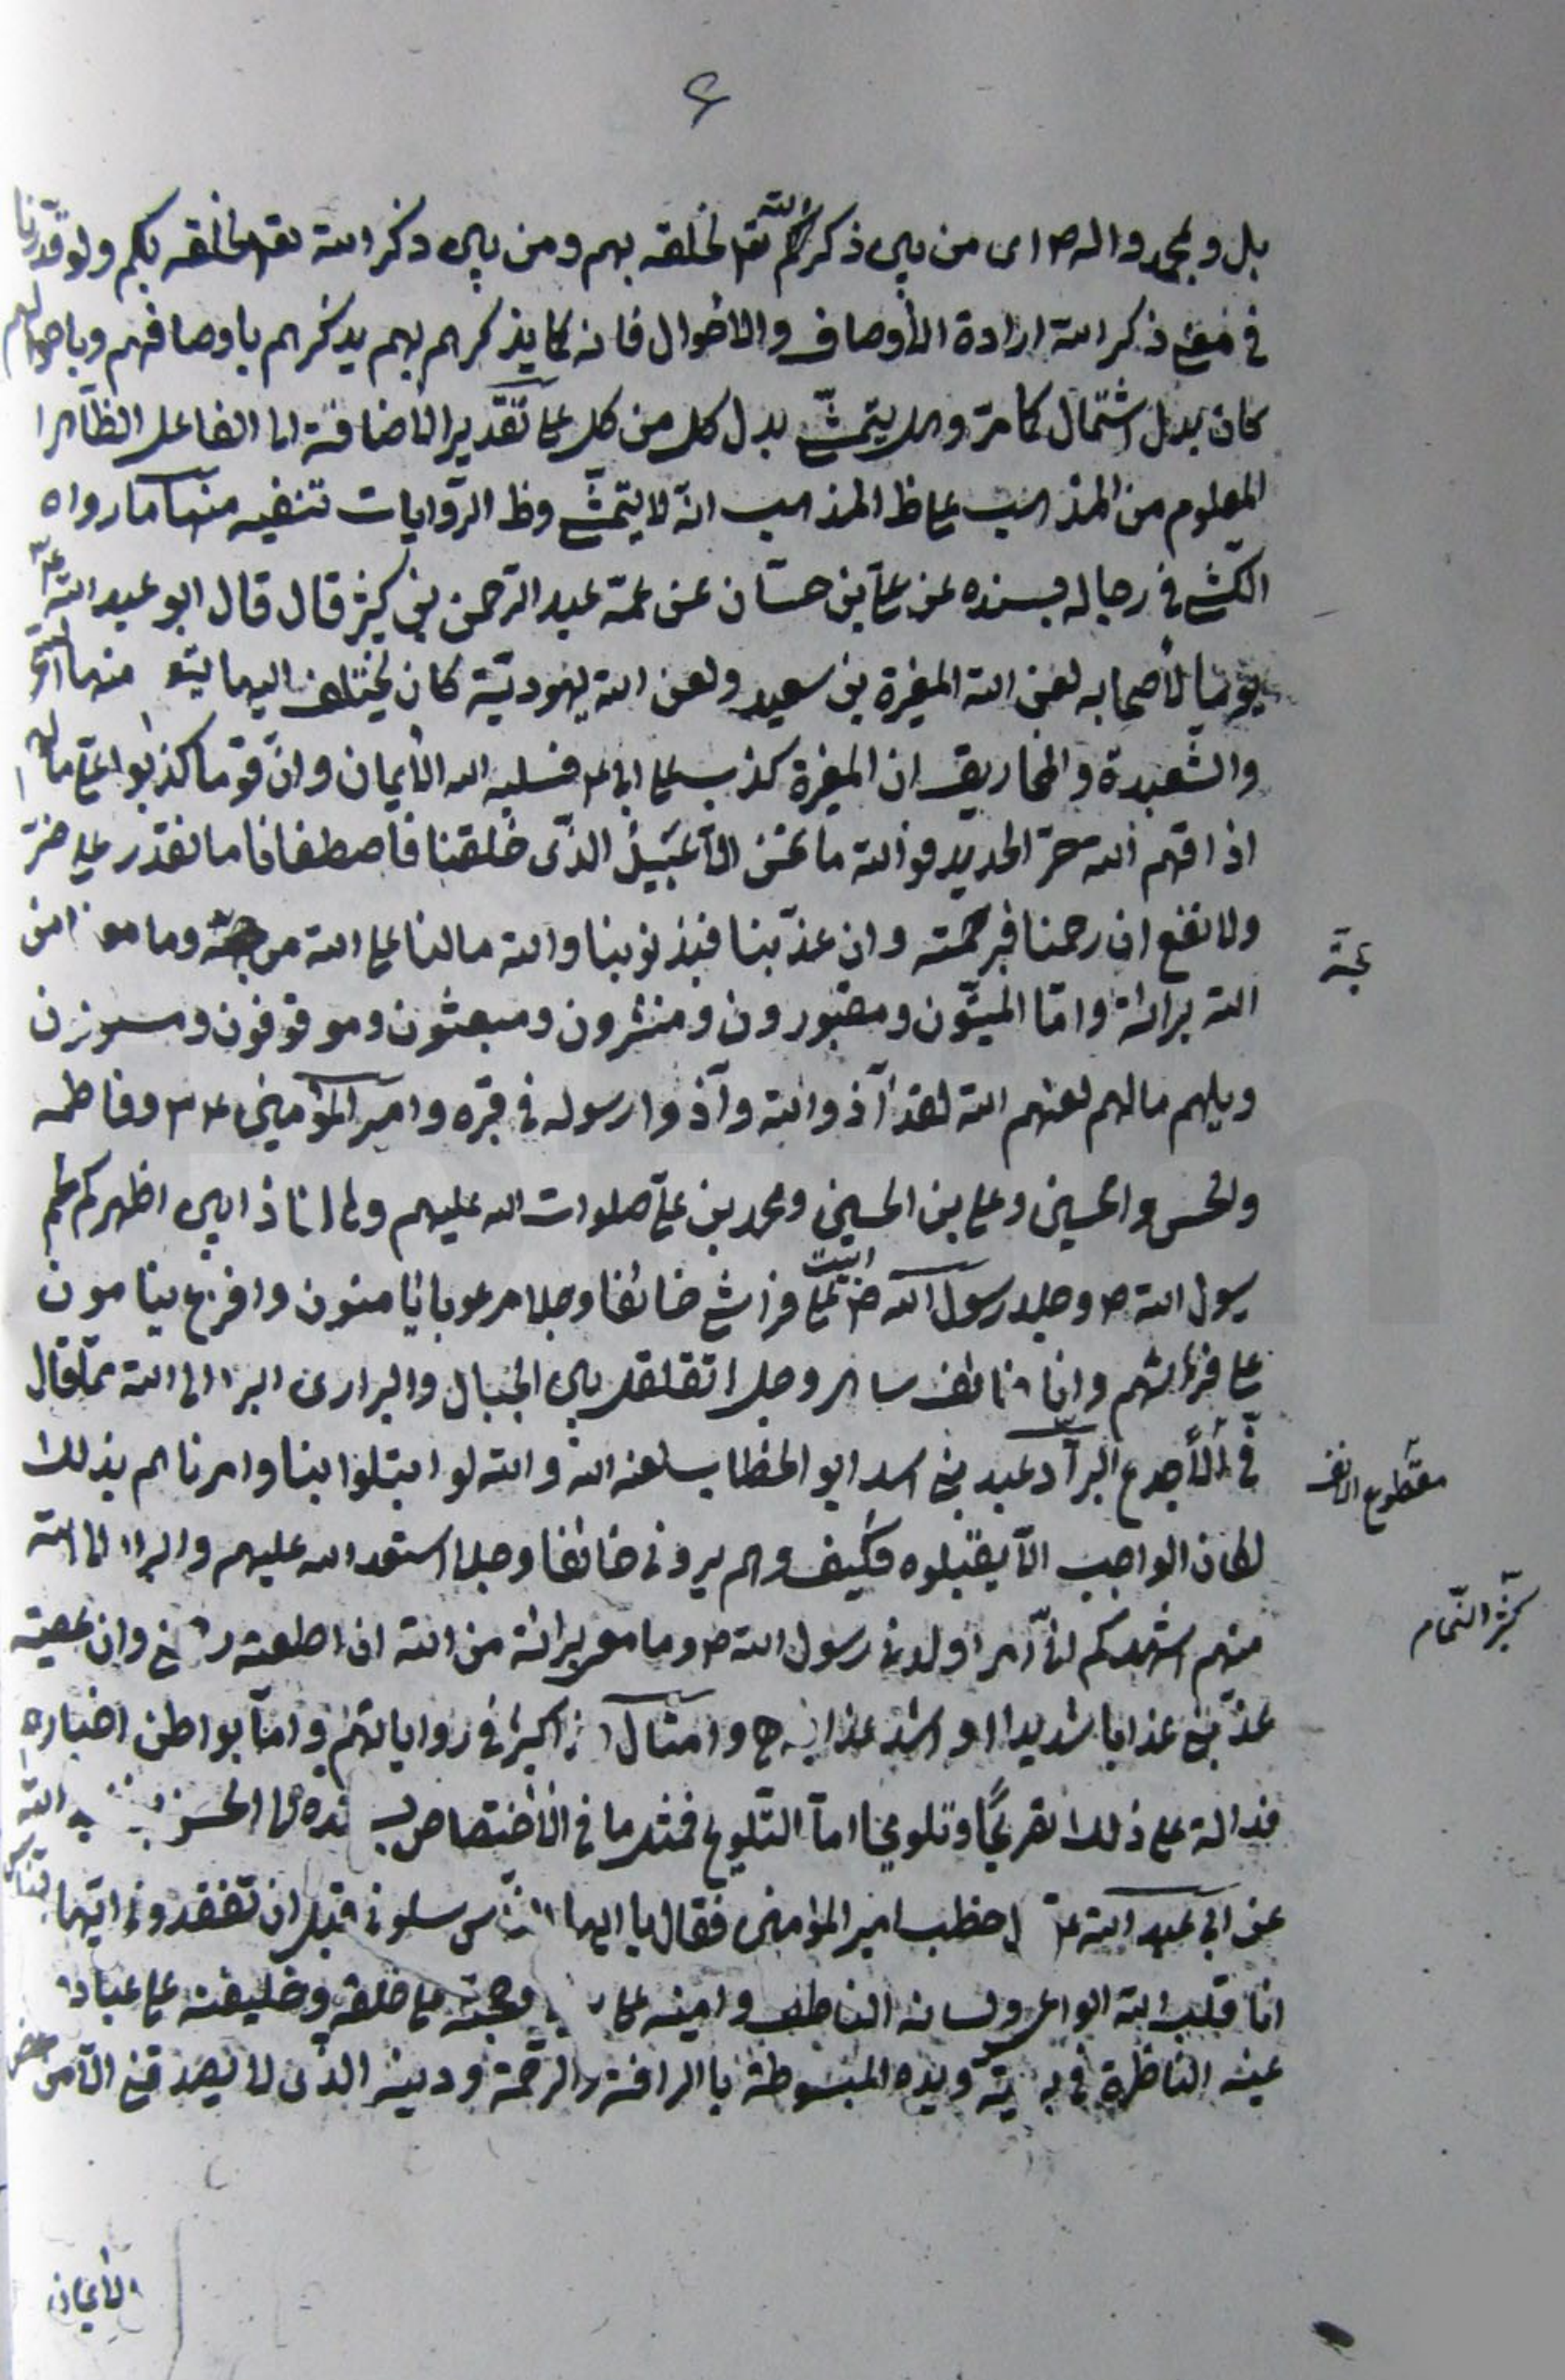 ۶
بل و بمحمد واله ص اى من بين ذكركم الله تعم لخلقه بهم ومن بين ذكر الله تعم لخلقه بكم ولو قدرنا
فى معنى ذكر الله ارادة الأوصاف والاحوال فانه كما يذكرهم بهم يذكرهم باوصافهم وباحوالهم
كان بدل اشتمال كما مرّ وهل يتمشّى بدل كل من كل على تقدير الاضافة الى الفاعل الظاهر
المعلوم من المذهب على ظ المذهب انه لا يتمشّى وظ الروايات تنفيه منها ما رواه
الكشّى فى رجاله بسنده عن على بن حسّان عن عمّه عبد الرّحمن بن كثير قال قال ابو عبد الله ع
يوميا لأصحابه لعن الله المغيرة بن سعيد ولعن الله يهوديّة كان يختلف اليها يتعلم منها السحر
والشّعبدة والمخاريق ان المغيرة كذب على ابى ع فسلبه الله الأيمان وانّ قوما كذبوا علىّ ما لهم
اذاقهم الله حرّ الحديد فوالله ما نحن الّا عبيد الذّى خلقنا فاصطفانا ما نقدر على ضرّ
ولا نفع ان رحمنا فبرحمته وان عذّبنا فبذنوبنا والله ما لنا على الله من حجّة وما معنا من
حجّة
الله برائة وانّا لميّتون ومقبورون ومنشرون ومبعثون وموقوفون ومسؤلون
ويلهم ما لهم لعنهم الله لقد آذوا الله وآذوا رسوله فى قبره وامير المؤمنين ع وفاطمه
والحسن والحسين وعلى بن الحسين ومحمد بن علىّ صلوات الله عليهم وها انا ذا بين اظهركم لحم
رسول الله ص وجلد رسول الله ص ابيت على فراشى خائفا وجلا مرعوبا يأمنون وافزع ينامون
على فرشهم وانا خائف ساهر وجل اتقلقل بين الجبال والبرارى ابرا الى الله ممّا قال
فىّ الأجدع البرّاد عبد بنى اسد ابو الخطاب لعنه الله والله لو ابتلوا بنا وامرناهم بذلك
مقطوع الانف
لكان الواجب الّا يقبلوه فكيف وهم يرونى خائفا وجلا استعد الله عليهم وابرا الى الله
منهم اشهدكم انّى امرؤ ولدنى رسول الله ص وما معى برائة من الله ان اطعته رحمنى وان عصيته
عذّبنى عذابا شديدا او اشد عذابه ح وامثال كثيرة فى رواياتهم وامّا بواطن اخبارهم
فدالة على ذلك تصريحًا وتلويحا امّا التّلويح فمثل ما فى الأختصاص بسنده الى الحسن بن عبد الله
عن ابى عبد الله ع خطب امير المؤمنين فقال يا ايها النّاس سلونى قبل ان تفقدونى ايها النّاس
انا قلب الله الواعى ولسانه الناطق وامينه على وحجته على خلقه وخليفته على عباده
عينه الناظرة فى بريّته ويده المبسوطة بالرافة والرحمة ودينه الذى لا يصدقنى الّا من محض
الأيمان